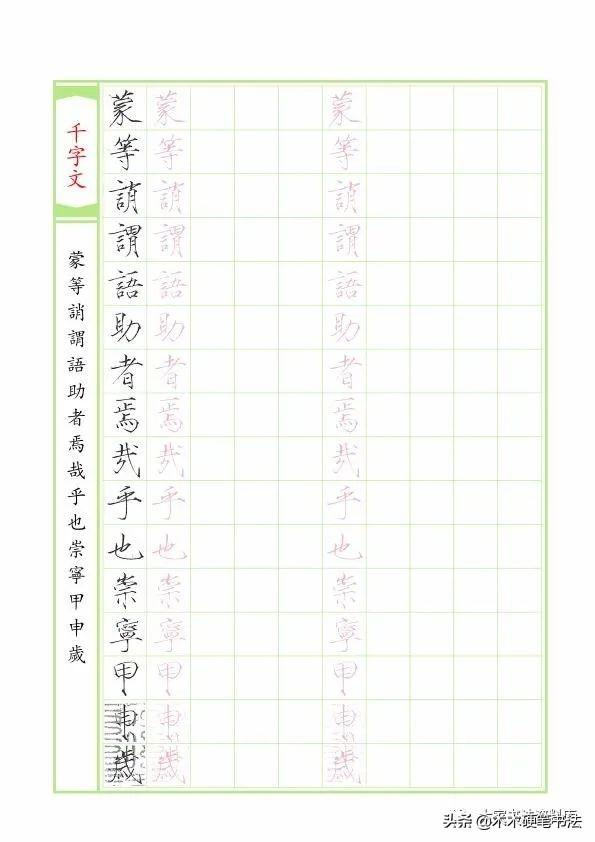 千字文
蒙等誚謂語助者焉哉乎也崇寧甲申歲
蒙等誚謂語助者焉哉乎也崇寧甲申歲
蒙等誚謂語助者焉哉乎也崇寧甲申歲
蒙等誚謂語助者焉哉乎也崇寧甲申歲
头条 @木木硬笔书法